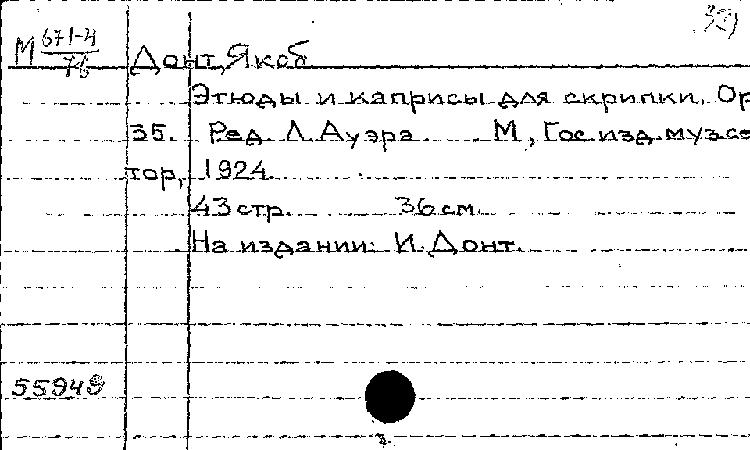 М 671-4
76
Донт, Якоб
Этюды и каприсы для скрипки. Ор
35. Ред. Л. Ауэра М., Гос. изд. муз. се
тор, 1924
43 стр. 36 см.
На издании: И. Донт.
55948